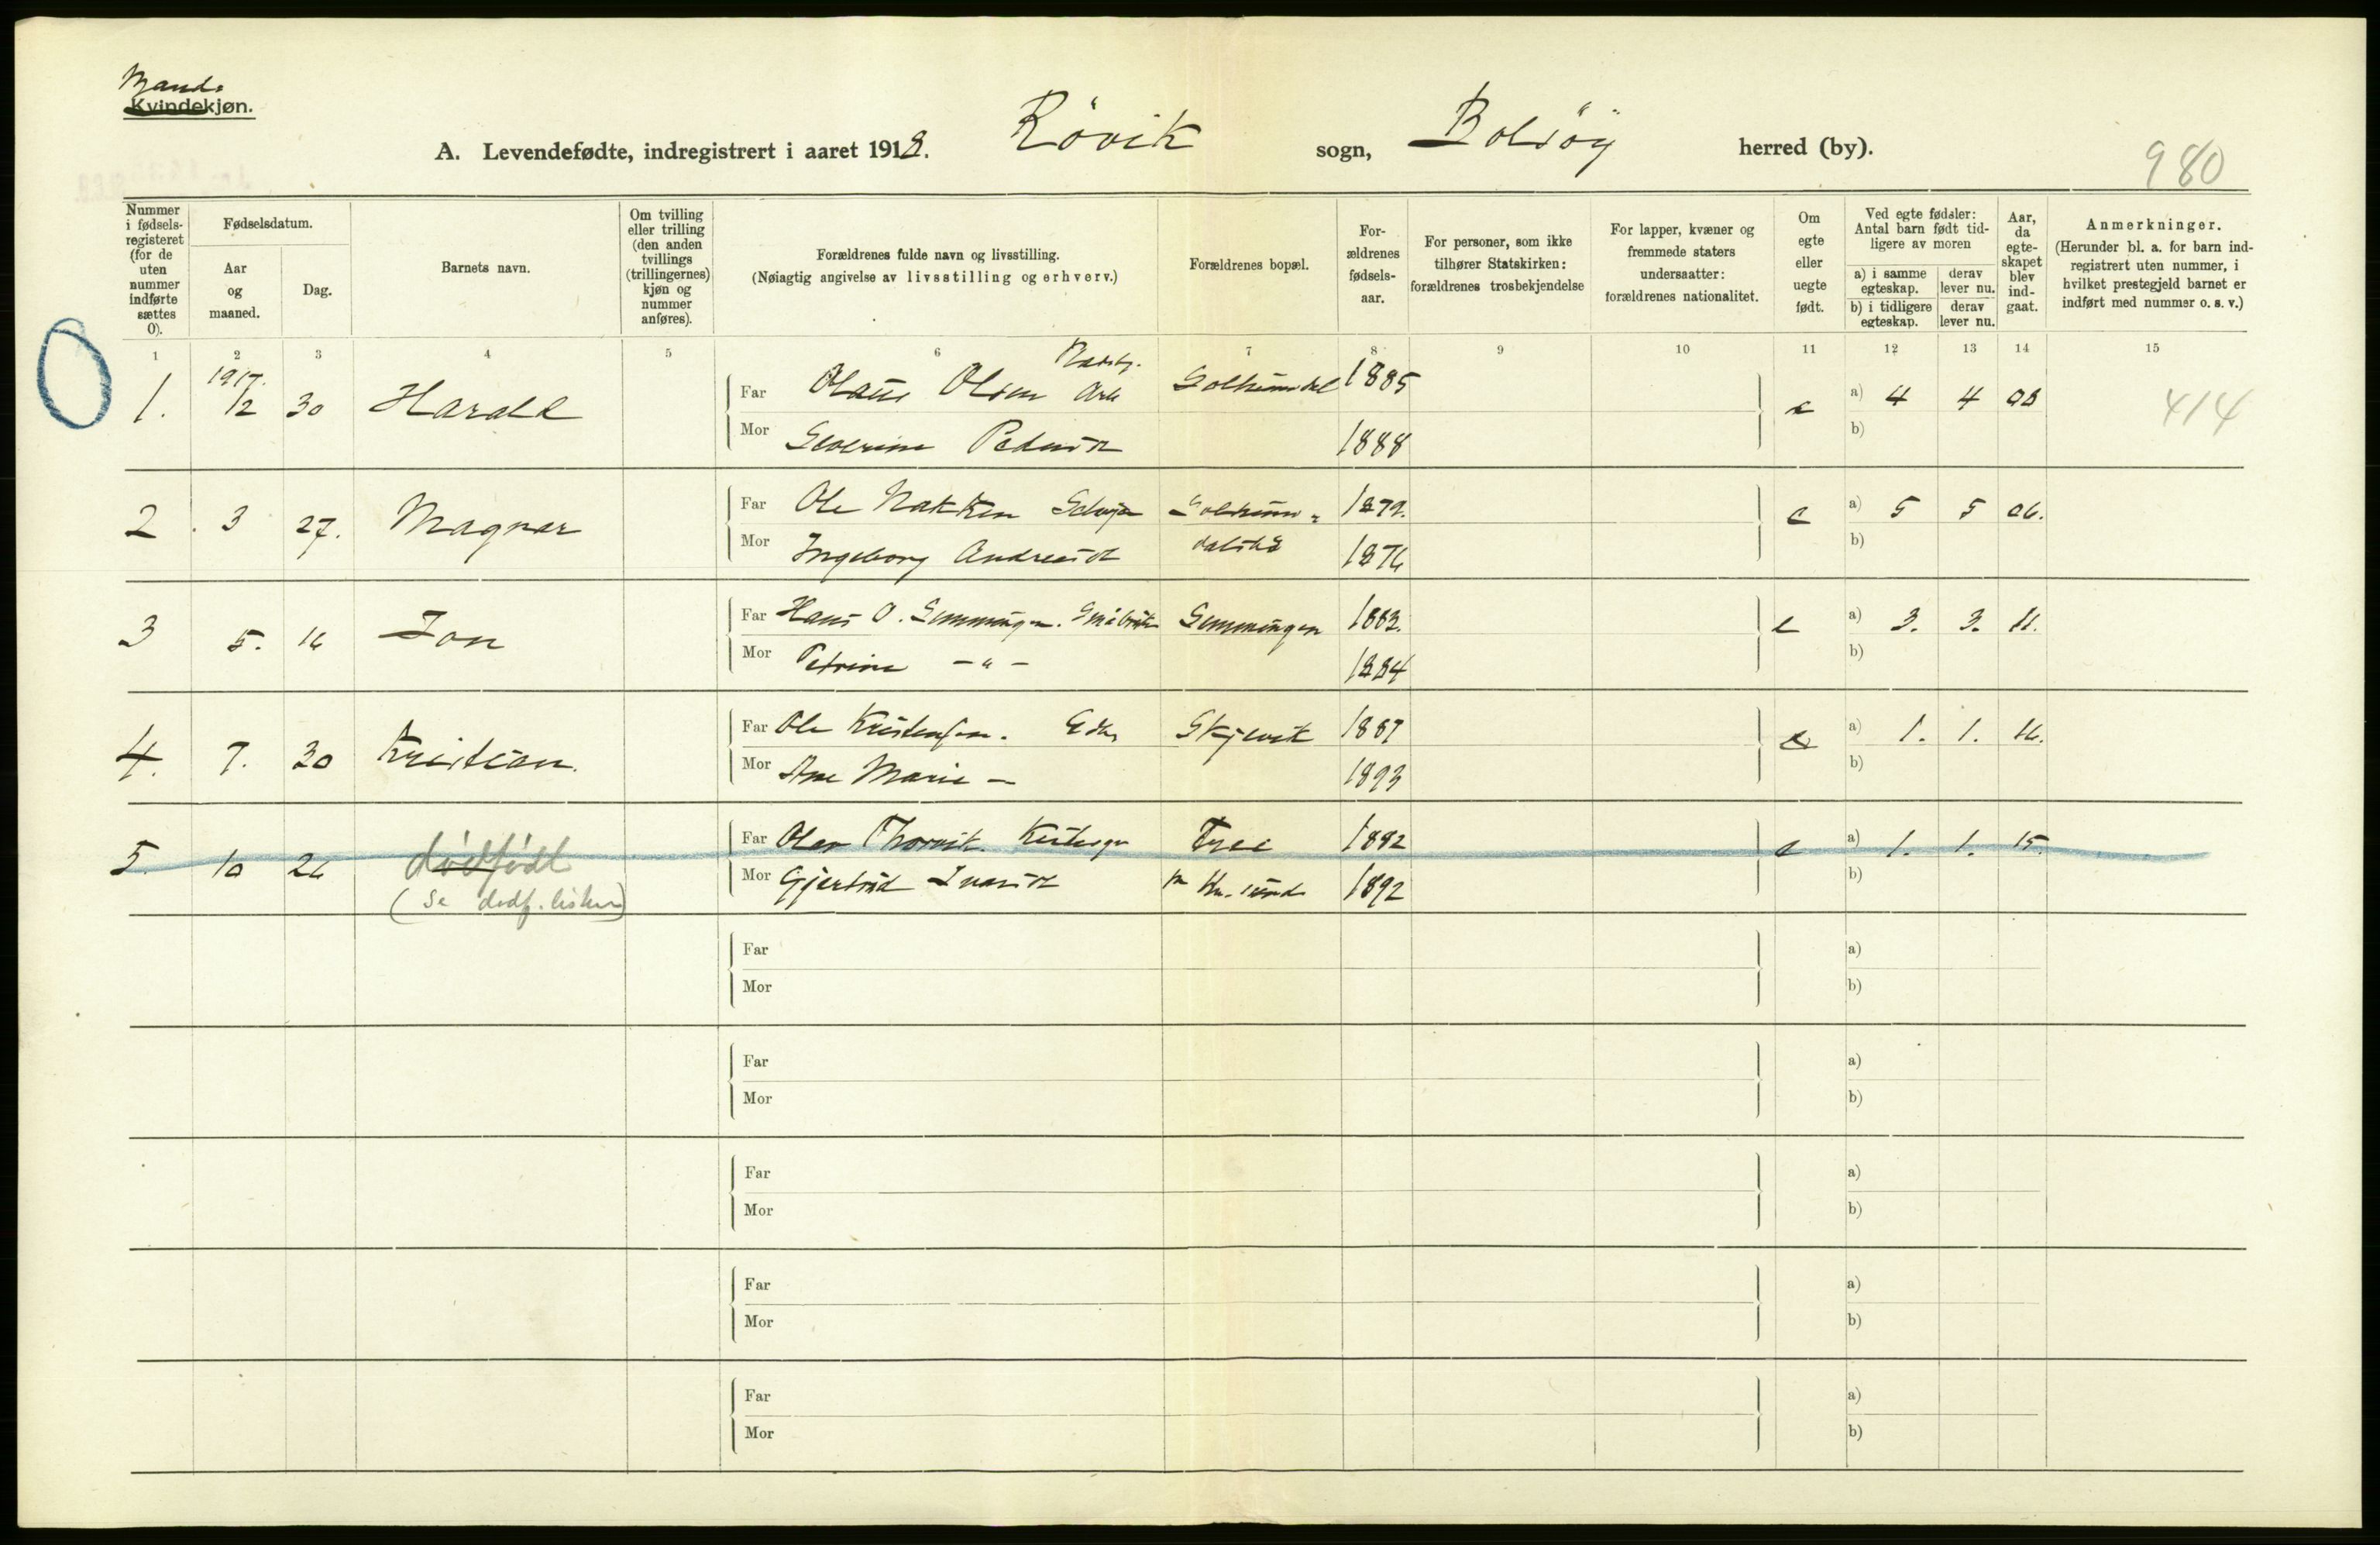 Mand-
Kvindekjøn.
A. Levendefødte, indregistrert i aaret 1918. Røvik sogn, Bolsøy herred (by). 980
Nummer i fødsels-registeret (for de uten nummer indførte sættes 0).
Fødselsdatum.
Aar og maaned.
Dag.
Barnets navn.
Om tvilling eller trilling (den anden tvillings (trillingernes) kjøn og nummer anføres).
Forældrenes fulde navn og livsstilling.
(Nøiagtig angivelse av livsstilling og erhverv.)
Forældrenes bopæl.
For-ældrenes fødsels-aar.
For personer, som ikke tilhører Statskirken: forældrenes trosbekjendelse
For lapper, kvæner og fremmede staters undersaatter: forældrenes nationalitet.
Om egte eller uegte født.
Ved egte fødsler: Antal barn født tid-ligere av moren
a) i samme egteskap.
derav lever nu.
b) i tidligere egteskap.
derav lever nu.
Aar, da egte-skapet blev ind-gaat.
Anmerkninger.
(Herunder bl. a. for barn ind-registrert uten nummer, i hvilket prestegjeld barnet er indført med nummer o. s. v.)
1 2 3 4 5 6 7 8 9 10 11 12 13 14 15
1917.
1. 12 30 Harald Far Olaus Olsen Arb 1885 e a) 4 4 08 414
Mor Severine 1888 b)
2 3 27. Magnar Far Ole Nakken 1872. e a) 5 5 06.
Mor Ingeborg 1876 b)
3 5. 16 Jon Far Hans O. Gemmingen Småbruker 1883. e a) 3. 3. 11.
Mor Petrine -"- 1884 b)
4. 7. 30 Kristian. Far Ole Kristensen. Skjevik 1887 e a) 1. 1. 16.
Mor Ane Marie - 1893 b)
5. 10 26 dødfødt Far Olav Thorvik 1892 e a) 1. 1. 15.
(se dødf. listen) Mor Gjertrud pr Kr.sund 1892 b)
Far a)
Mor b)
Far a)
Mor b)
Far a)
Mor b)
Far a)
Mor b)
Far a)
Mor b)